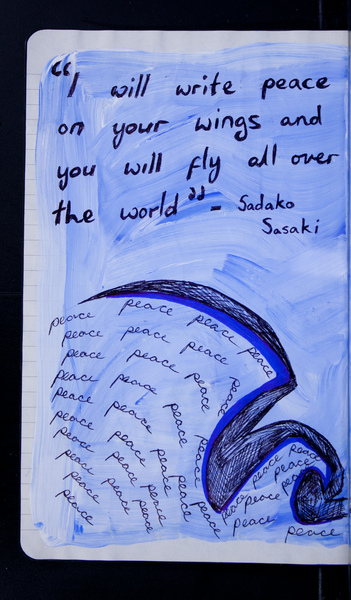 “I will write peace
on your wings and
you will fly all over
the world” - Sadako
Sasaki
peace peace peace peace
peace peace peace peace
peace peace peace
peace peace peace peace
peace peace peace
peace peace peace peace
peace peace peace peace
peace peace peace peace
peace peace peace
peace peace peace
peace peace peace
peace peace
peace